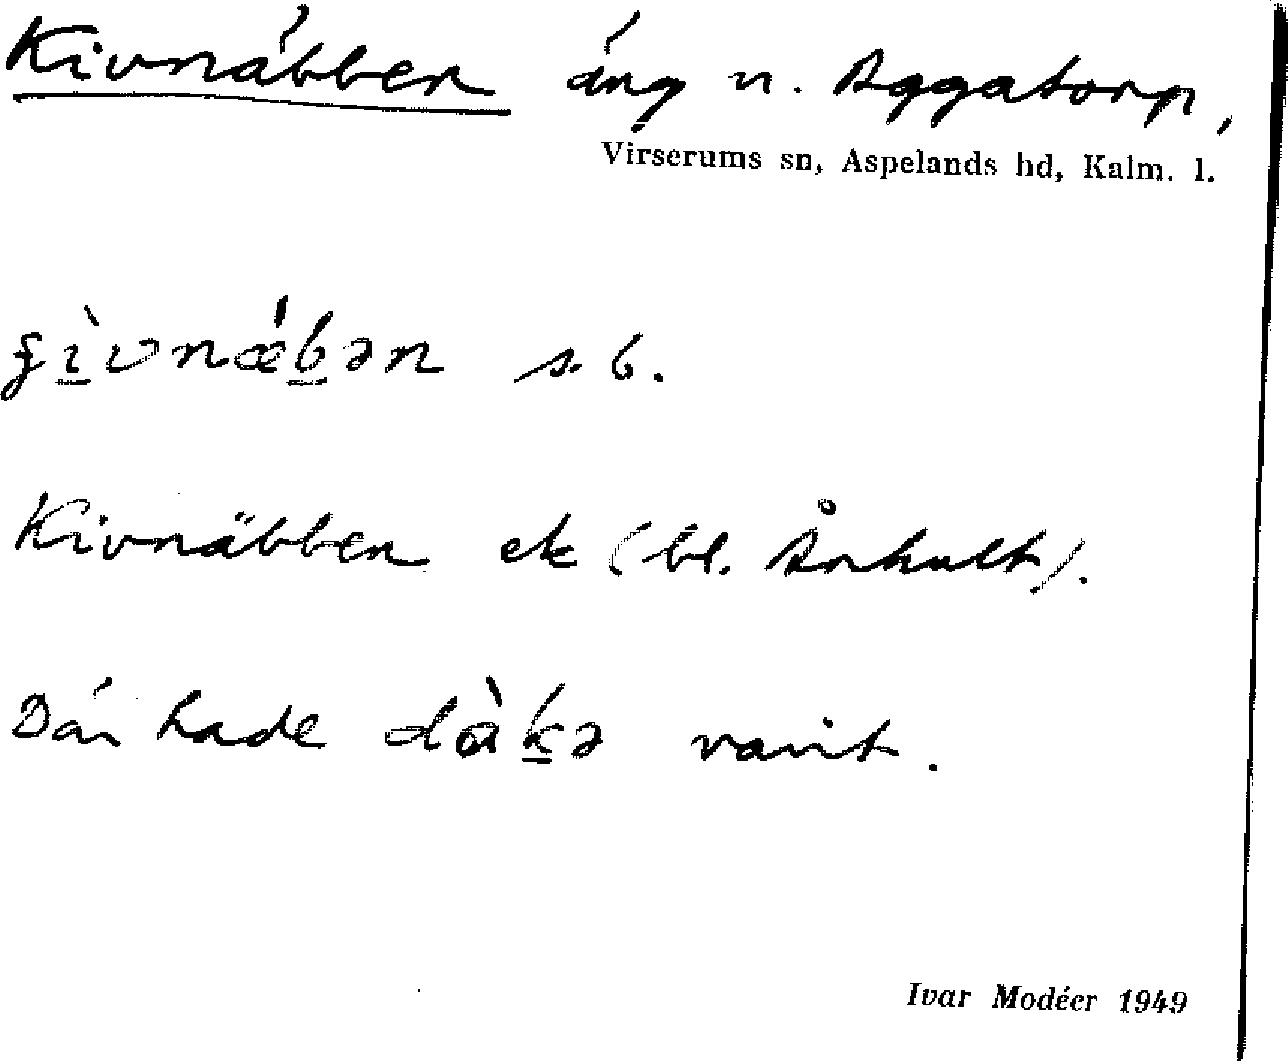 Kivnäbben äng n. Aggatorp,
Virserums sn, Aspelands hd, Kalm. l.
s. b.
Kivnäbben ek (bl. Århult).
Där hade varit.
Ivar Modéer 1949